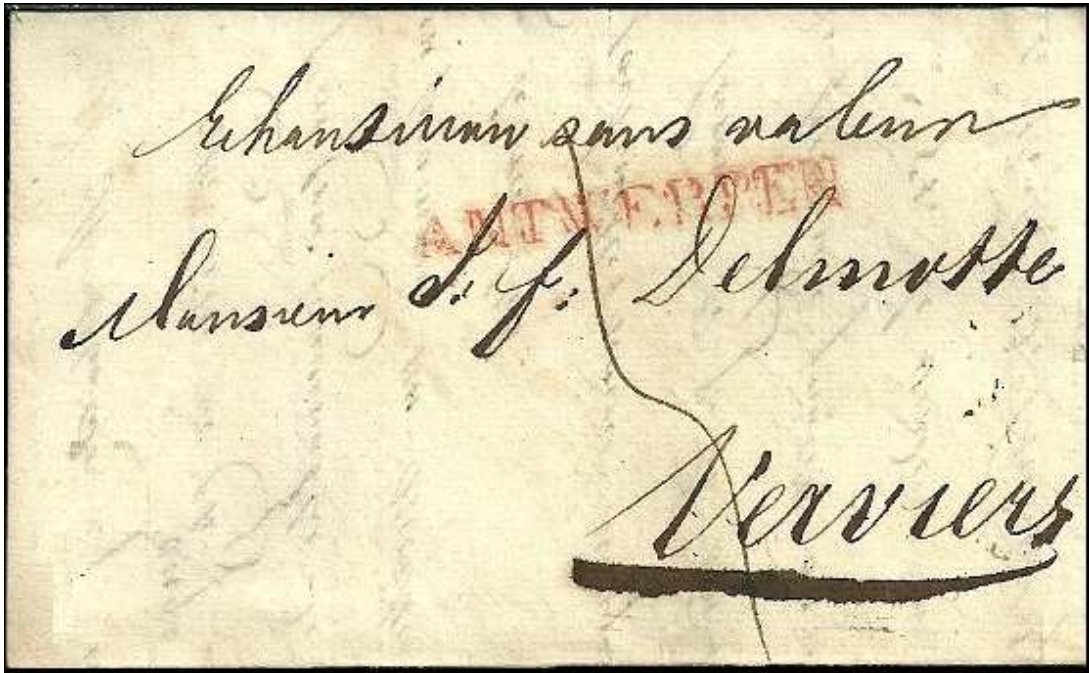 Echansinon sans valeur
ANTWERPEN
Monsieur S. f. Delmotte
Verviers